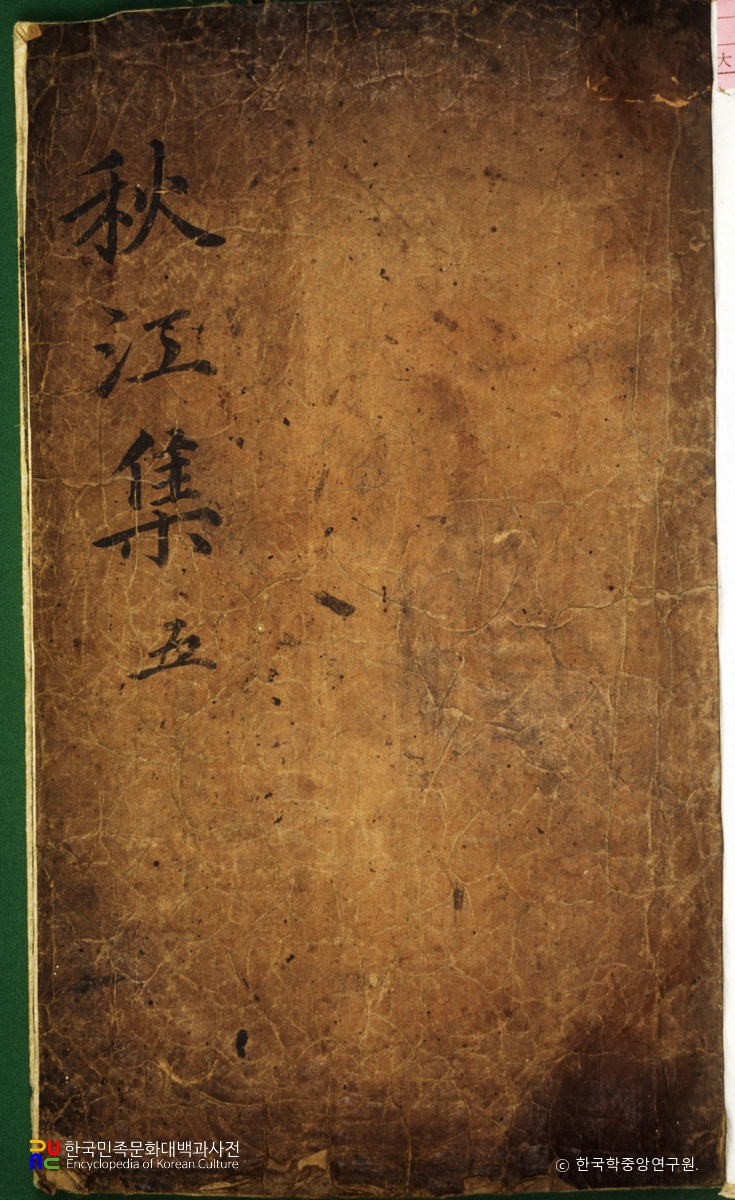 秋江集 五
大
한국민족문화대백과사전
Encyclopedia of Korean Culture
ⓒ 한국학중앙연구원.